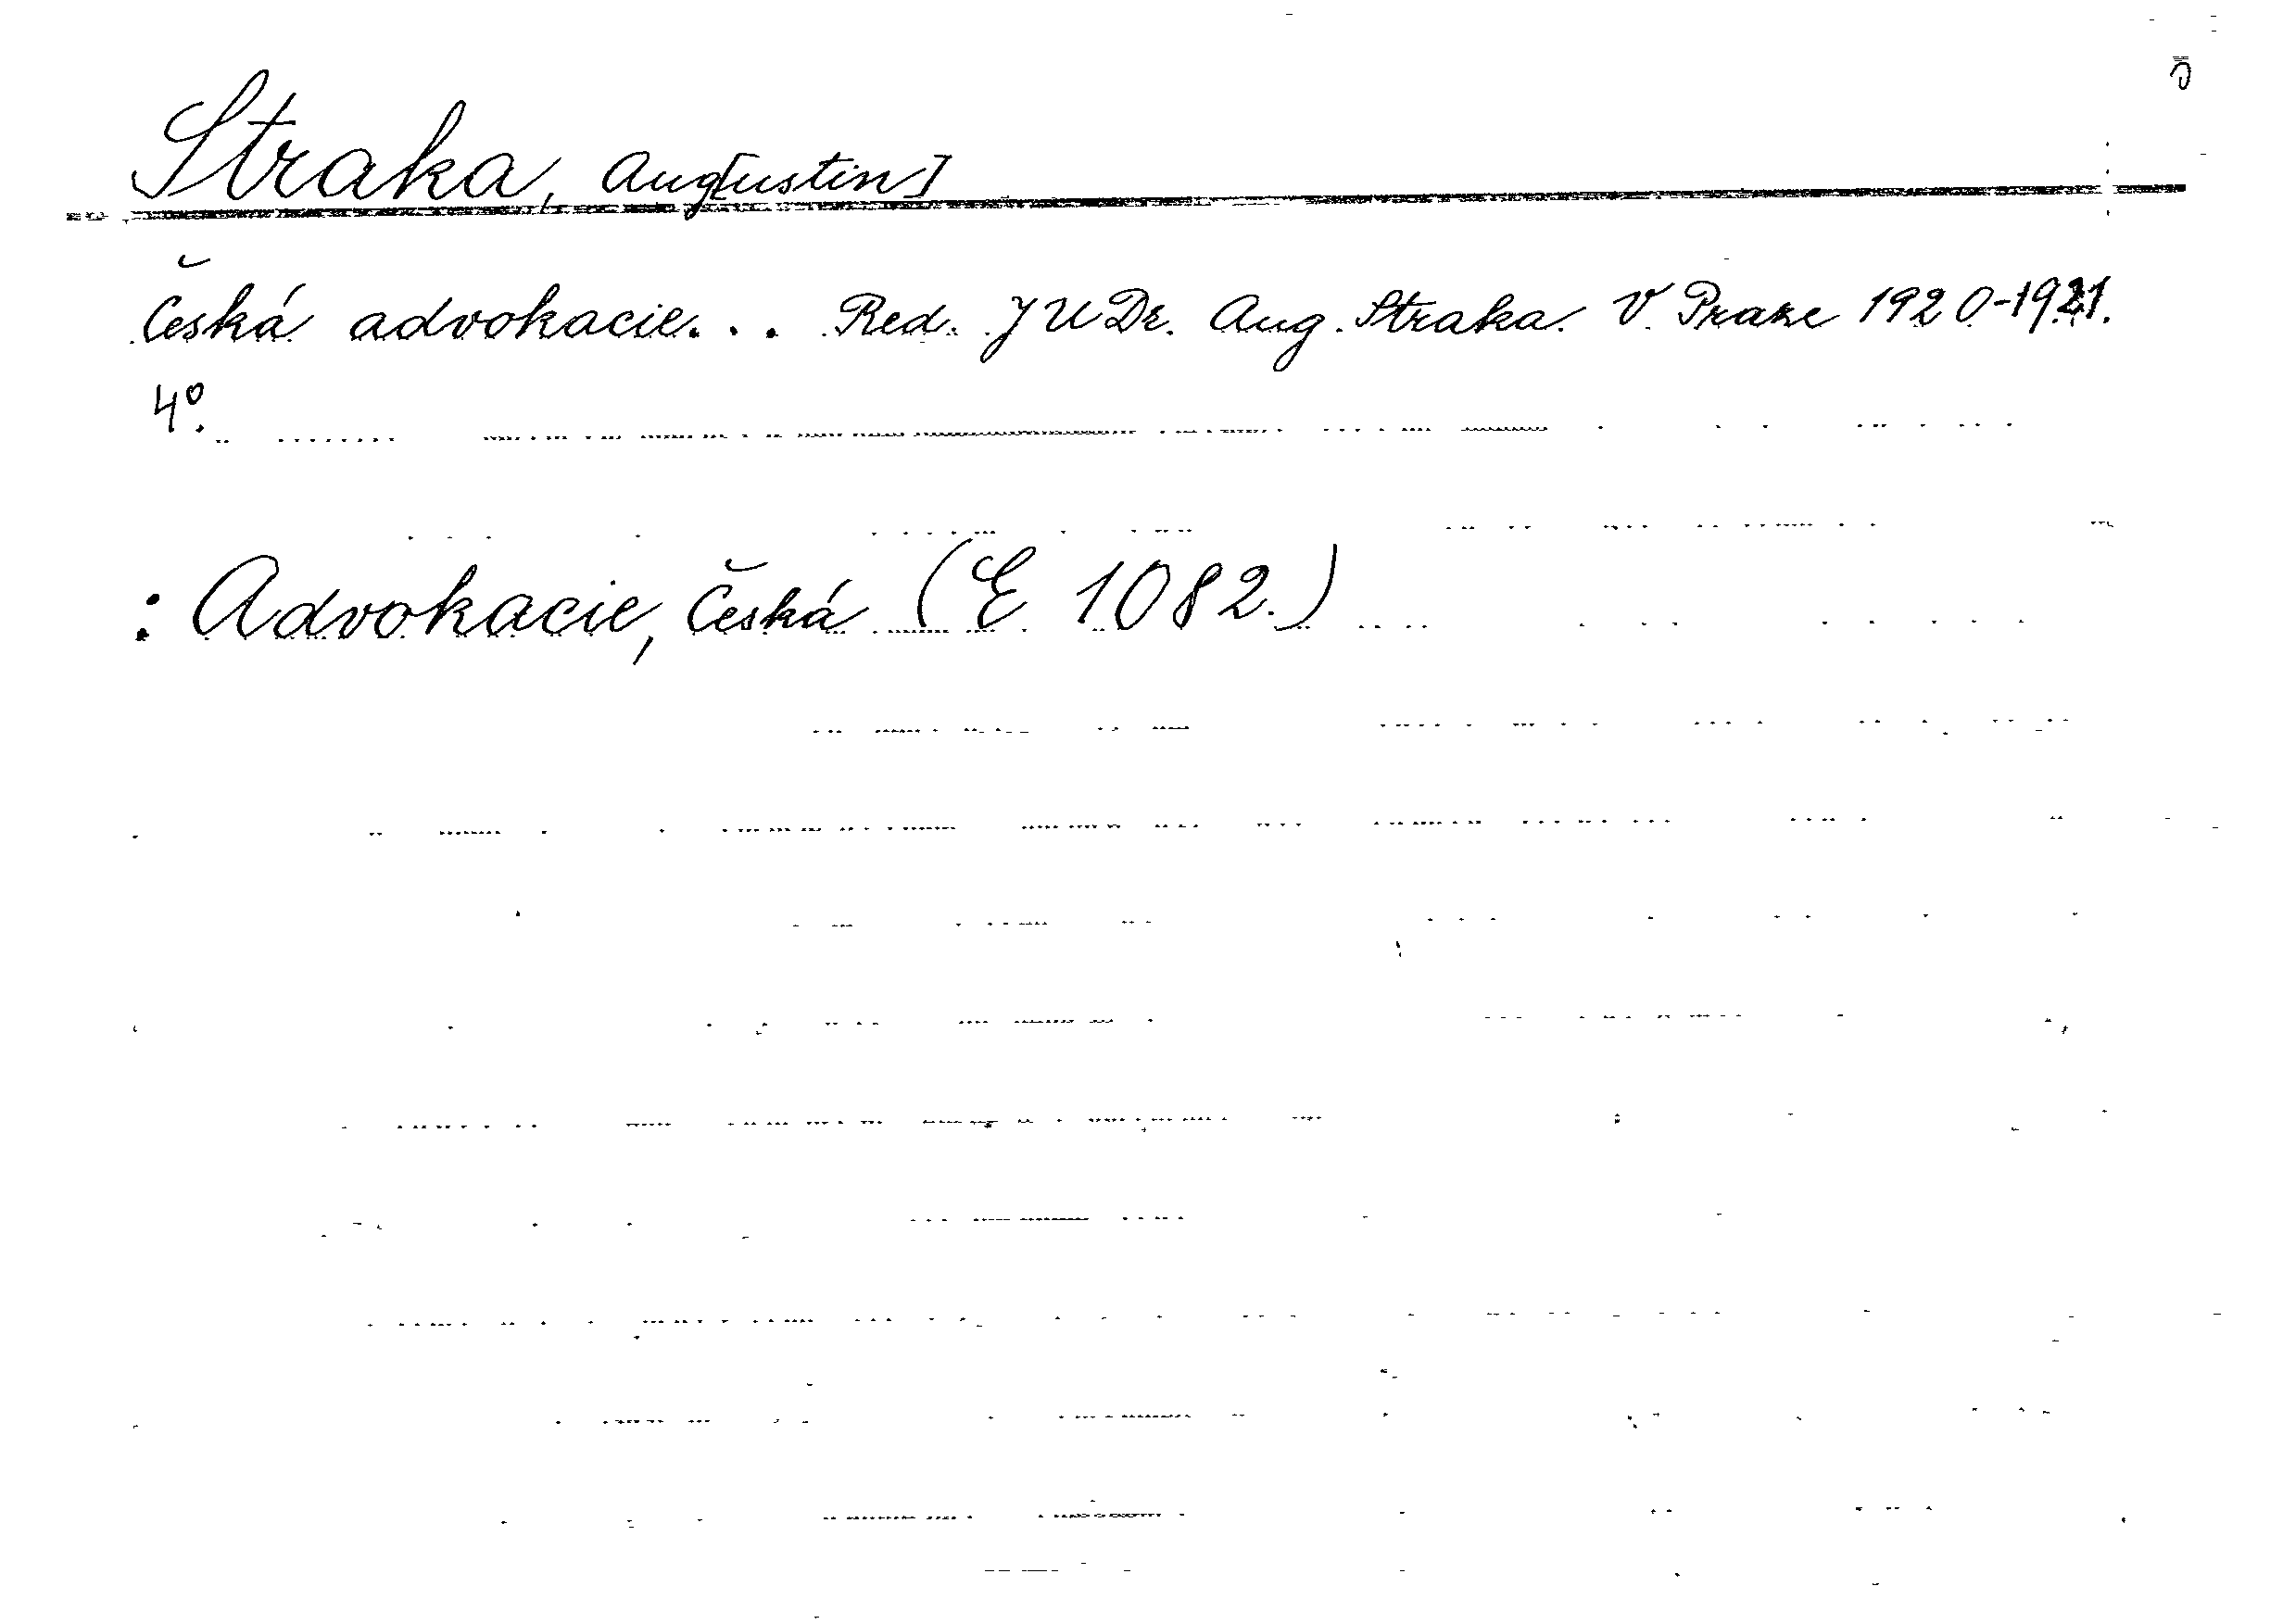 Straka, Aug[ustin]
Česká advokacie... Red. JUDr. Aug. Straka. V Praze 1920-1921.
4°.
: Advokacie, Česká (E 1082.)